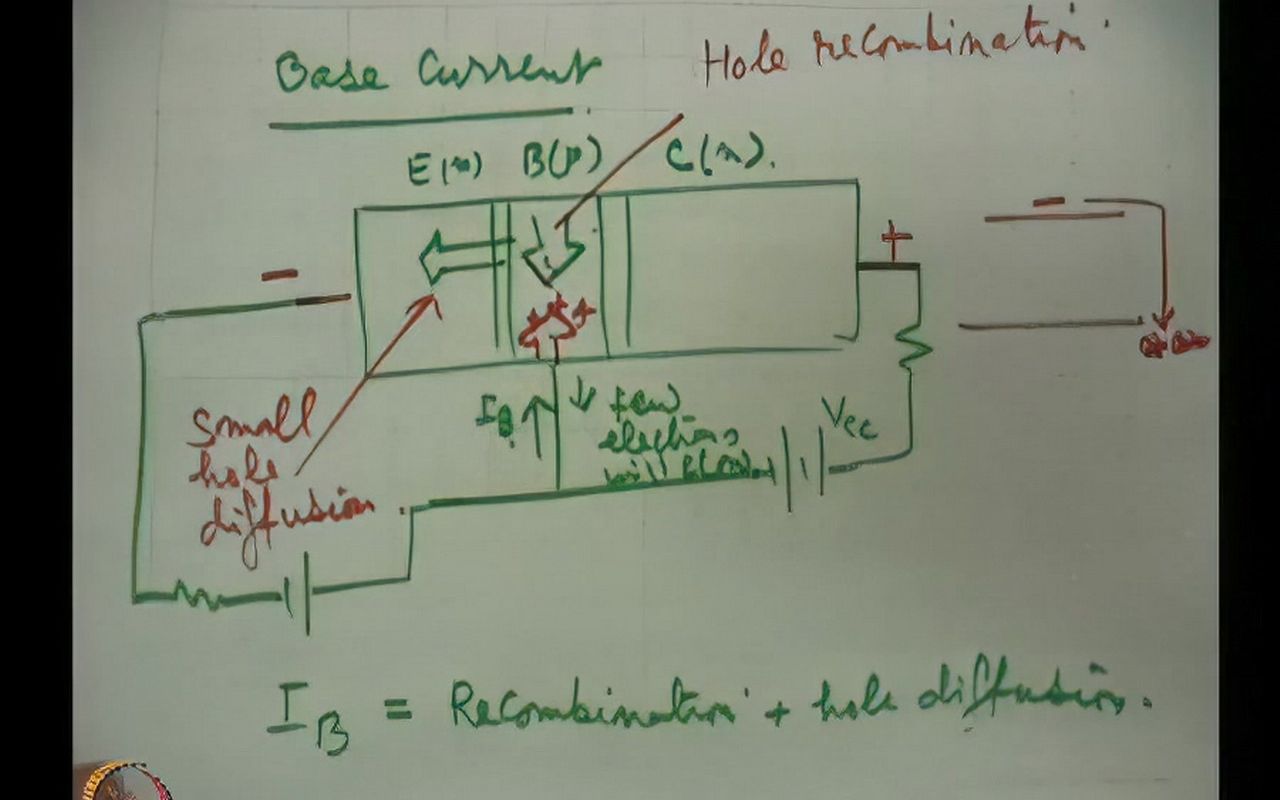 Base Current
Hole recombination
E(n) B(p) C(n).
-
+
-
Small
hole
diffusion.
I_B
few
electrons
will
Vcc
I_B = Recombination + hole diffusion.